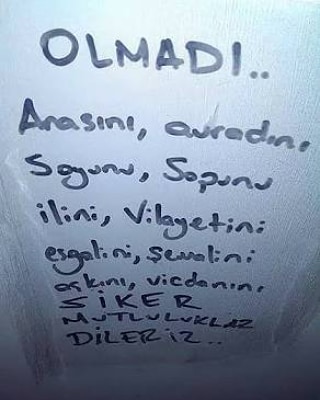 OLMADI..
Anasını, avradını
Soyunu, Sopunu
ilini, Vilayetini
eşgalini, Şemalini
aşkını, vicdanını
SİKER
MUTLULUKLAR
DİLERİZ..